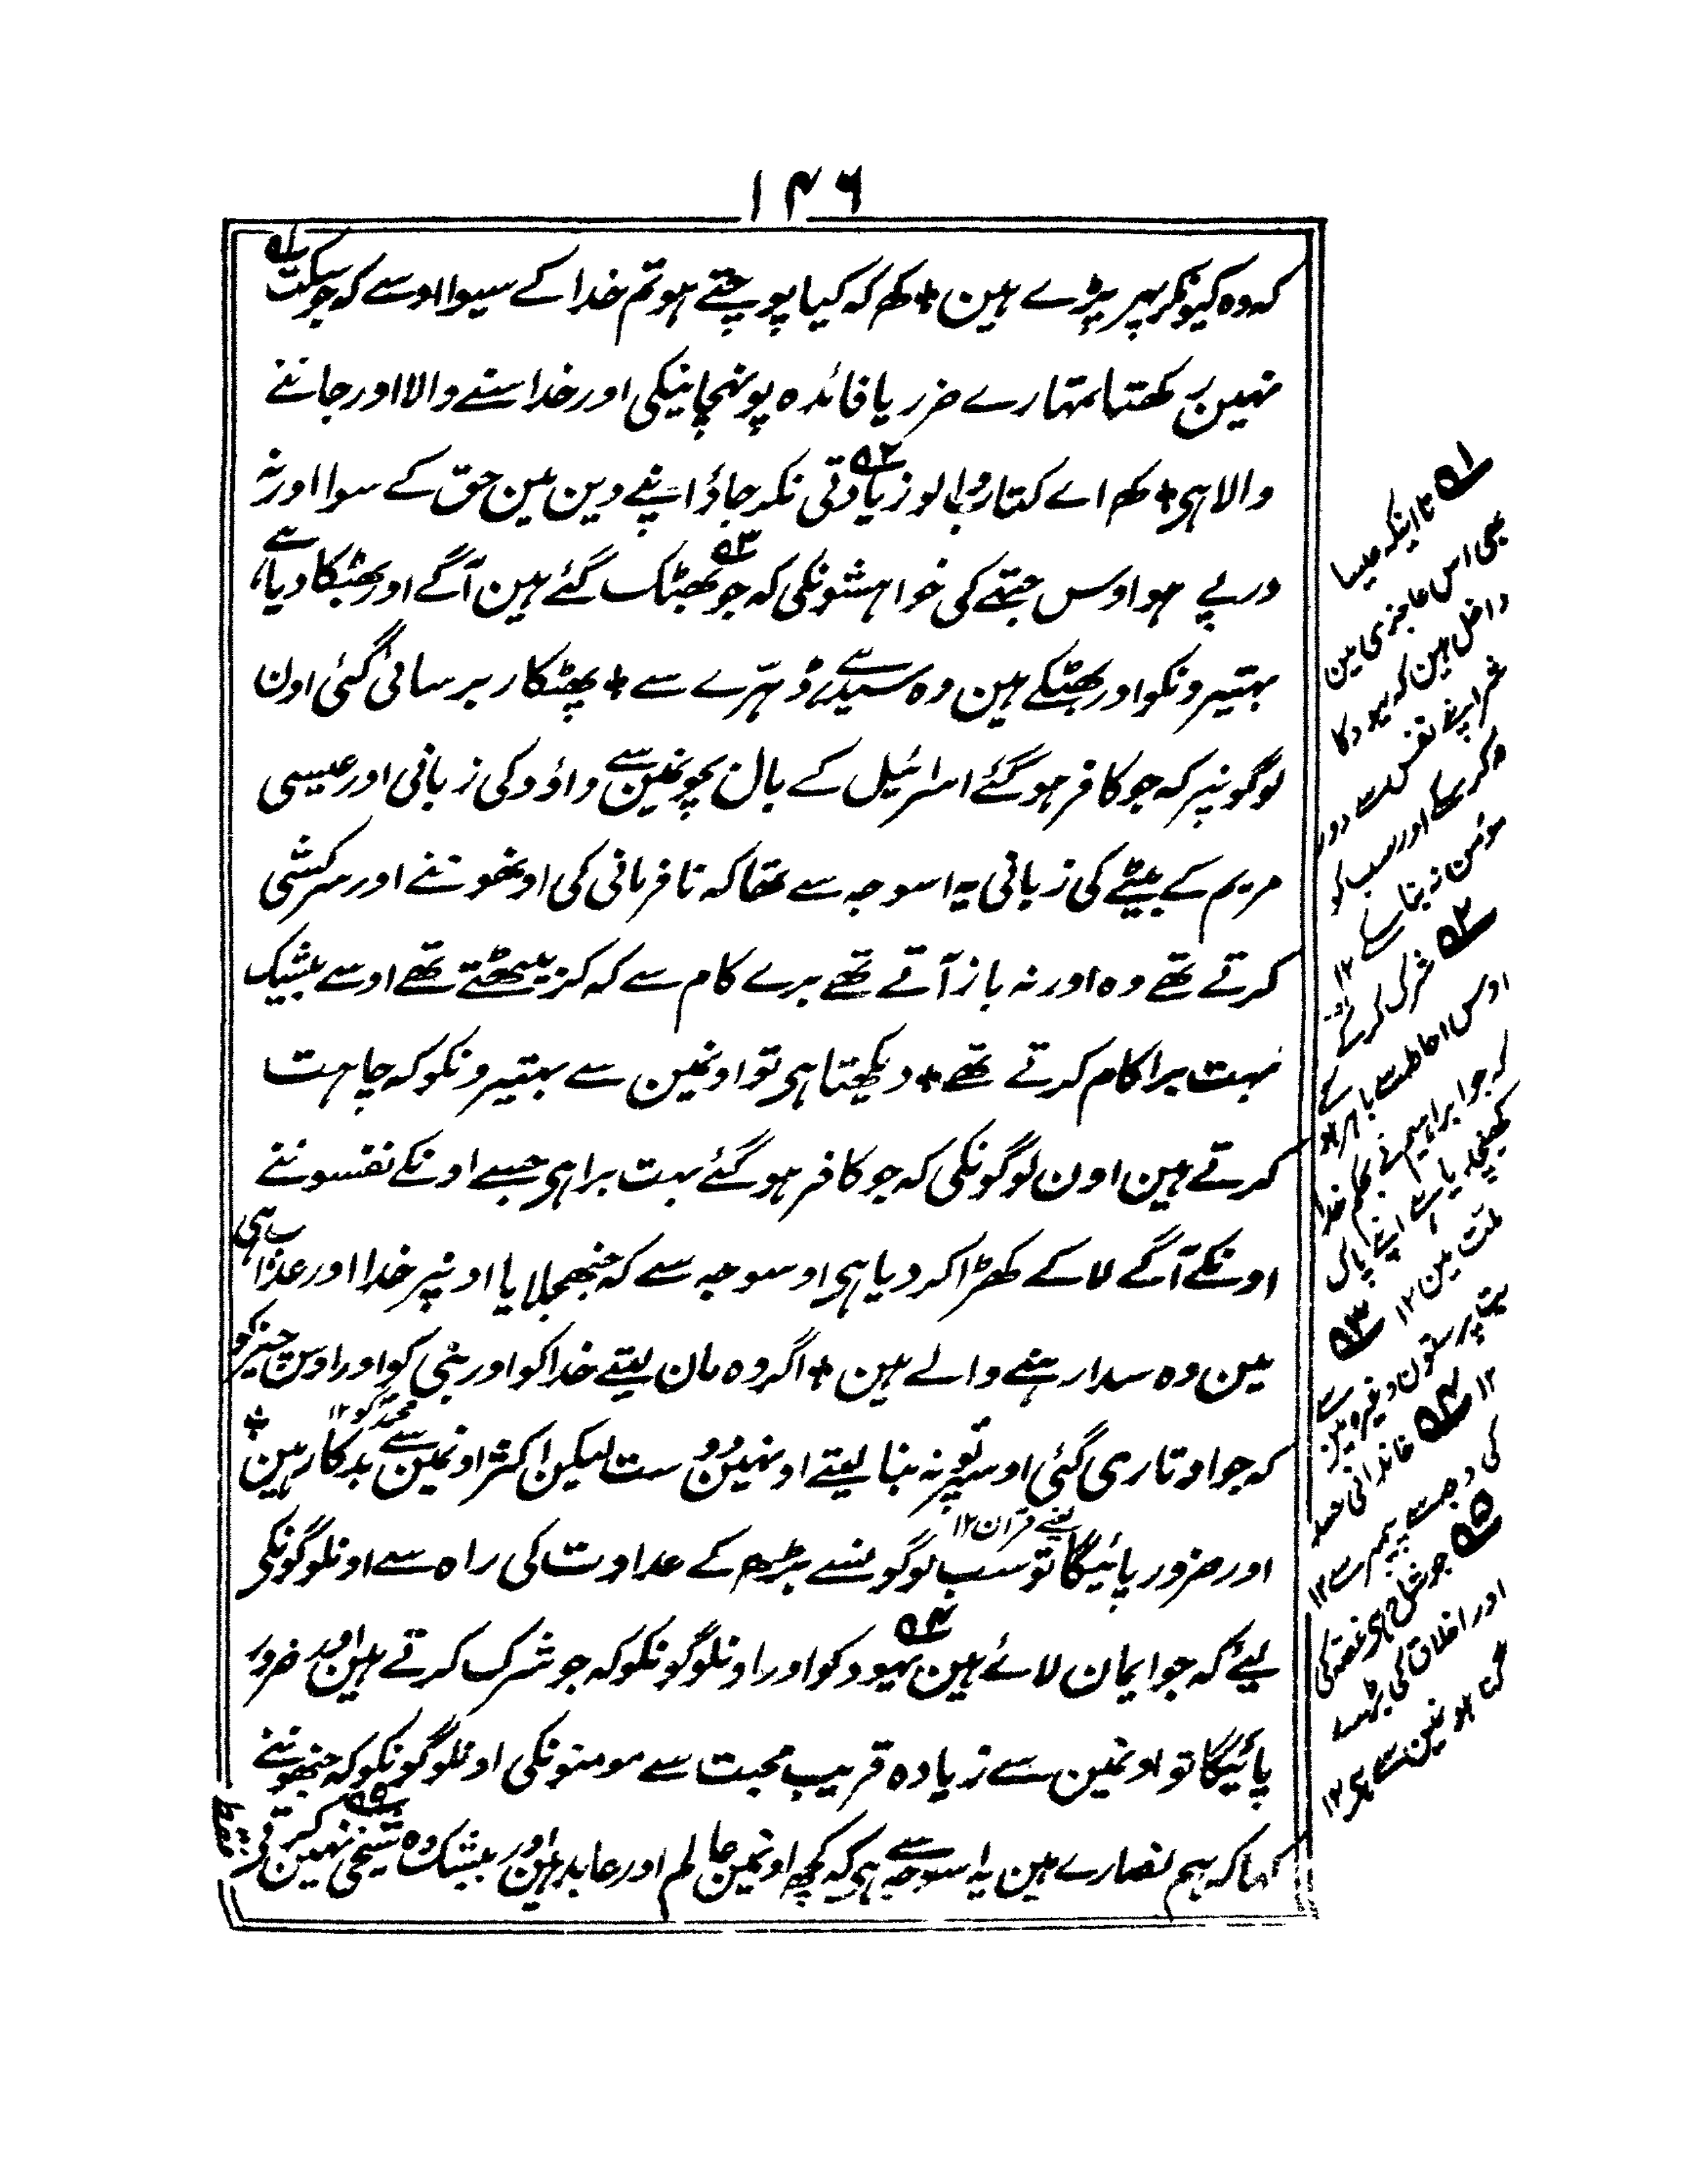 ۱۴۶
که وه کیونکر پهر پڑے هین + کهه که کیا پوجتے هو تم خدا کے سیوا اوسے که جو سکت
نهین رکھتا تمهارے ضرر یا فائده پونهچانیکی اور خدا سننے والا اور جاننے
والا هی + کهه اے کتاب والو زیادتی نکر جاؤ اپنے دین مین حق کے سوا اور نه
درپے هو اوس جتھے کی خواهشونکی که جو بھٹک گئے هین آگے اور بھٹکا دیا هے
بهتیرونکو اور بھٹکے هین وه سیدھے ڈھرّے سے + پھٹکار برسائی گئی اون
لوگونپر که جو کافر هو گئے اسرائیل کے بال بچونمین سے داؤد کی زبانی اور عیسی
مریم کے بیٹے کی زبانی یه اسوجه سے تھا که نافرمانی کی اونھوننے اور سرکشی
کرتے تھے وه اور نه باز آتے تھے برے کام سے که کر بیٹھتے تھے اوسے بیشک
بهت برا کام کرتے تھے + دیکھتا هی تو اونمین سے بهتیرونکو که چاهت
کرتے هین اون لوگونکی که جو کافر هو گئے بهت برا هی جسے اونکے نفسوننے
اونکے آگے لا کے کھڑا کر دیا هی اوسوجه سے که جنھجلایا اونپر خدا اور عذاب هی
مین وه سدا رهنے والے هین + اگر وه مان لیتے خدا کو اور نبی کو اور اوس چیز کو
محمد کو ۱۲
که جو اوتاری گئی اوسپر تو نه بنا لیتے اونهین دوست لیکن اکثر اونمین سے بدکار هین +
یعنے قران ۱۲
اور ضرور پائیگا تو سب لوگونسے بڑھه کے عداوت کی راه سے اونلوگونکی
لیئے که جو ایمان لائے هین یهود کو اور اونلوگونکو که جو شرک کرتے هین اور ضرور
پائیگا تو اونمین سے زیاده قریب محبت سے مومنونکی اونلوگونکو که جنھوننے
کها که هم نصارے هین یه اسوجه سے هی که کچھه اونمین عالم اور عابد هین اور بیشک وه شیخی نهین کرتے
۵۱ تا اینکه عیسا
بھی اس عاجزی مین
داخل هین که یهود کا
شر اپنے نفس سے دور
نکر سکے اور سب کو
مومن نه بنا سکے ۱۲
۵۲ شرک کرکے
اوس احاطے سے باهر نه
که جو ابراهیم نے بحکم خدا
کھینچ دیا هے اپنے پاک
ملت مین ۱۲
۵۳ بت پرستون وغیره مین سے
۱۲ ۵۴ خاندانی حسد
کی وجه سے پیمبر سے ۱۲
۵۵ جو شل هی غصه کی
اور اخلاق کی بڑے